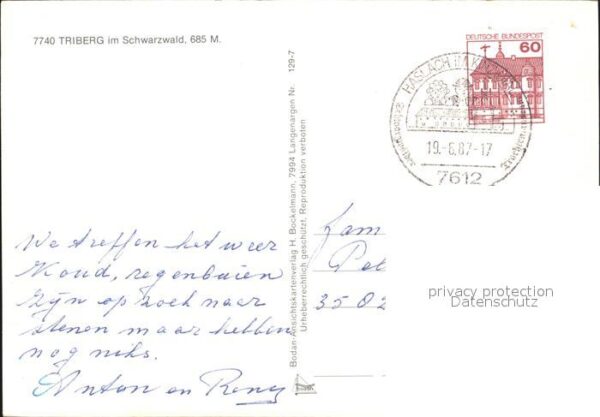 7740 TRIBERG im Schwarzwald, 685 M.
DEUTSCHE BUNDESPOST
60
HASLACH IM
19.-6.87-17
7612
Bodan-Ansichtskartenverlag H. Bockelmann, 7994 Langenargen Nr. 129-7
Urheberrechtlich geschützt, Reproduktion verboten
We treffen het weer
Koud, regenbuien
Zijn op zoek naar
stenen maar hebben
nog niks.
Anton en Rony
fam
Pet
3502
privacy protection
Datenschutz